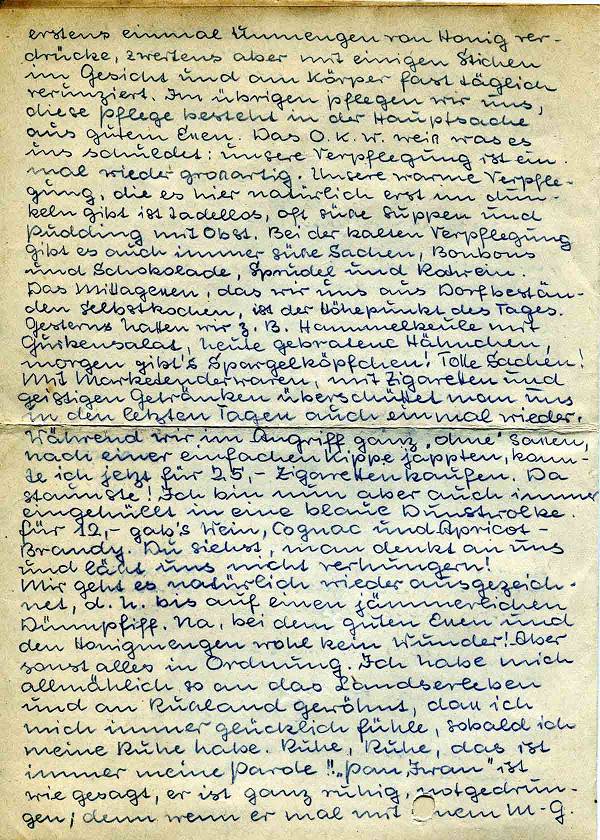 erstens einmal Unmengen von Honig ver-
drücke, zweitens aber mit einigen Stichen
im Gesicht und am Körper fast täglich
verunziert. Im übrigen pflegen wir uns,
diese Pflege besteht in der Hauptsache
aus gutem Essen. Das O.K.W. weiß was es
uns schuldet: unsere Verpflegung ist ein-
mal wieder großartig. Unsere warme Verpfle-
gung, die es hier natürlich erst im dun-
keln gibt ist tadellos, oft süße Suppen und
Pudding mit Obst. Bei der kalten Verpflegung
gibt es auch immer süße Sachen, Bonbons
und Schokolade, Sprudel und Rotwein.
Das Mittagessen, das wir uns aus Dorfbestän-
den selbstkochen, ist der Höhepunkt des Tages.
Gestern hatten wir z.B. Hammelkeule mit
Gurkensalat, heute gebratene Hähnchen,
morgen gibt's Spargelköpfchen! Tolle Sachen!
Mit Marketenderwaren, mit Zigaretten und
geistigen Getränken überschüttet man uns
in den letzten Tagen auch einmal wieder.
Während wir im Angriff ganz „ohne" sassen,
nach einer einfachen Kippe jappten, konn-
te ich jetzt für 25,- Zigaretten kaufen. Da
staunste! Ich bin nun aber auch immer
eingehüllt in eine blaue Dunstwolke.
für 12,- gab's Wein, Cognac und Apricot-
Brandy. Du siehst, man denkt an uns
und läßt uns nicht verhungern!
Mir geht es natürlich wieder ausgezeich-
net, d.h. bis auf einen jämmerlichen
Dünnpfiff. Na, bei dem guten Essen und
den Honigmengen wohl kein Wunder! Aber
sonst alles in Ordnung. Ich habe mich
allmählich so an das Landserleben
und an Rußland gewöhnt, daß ich
mich immer glücklich fühle, sobald ich
meine Ruhe habe. Ruhe, Ruhe, das ist
immer meine Parole!! „Pan Iwan" ist
wie gesagt, er ist ganz ruhig, notgedrun-
gen; denn wenn er mal mit nem M-G.